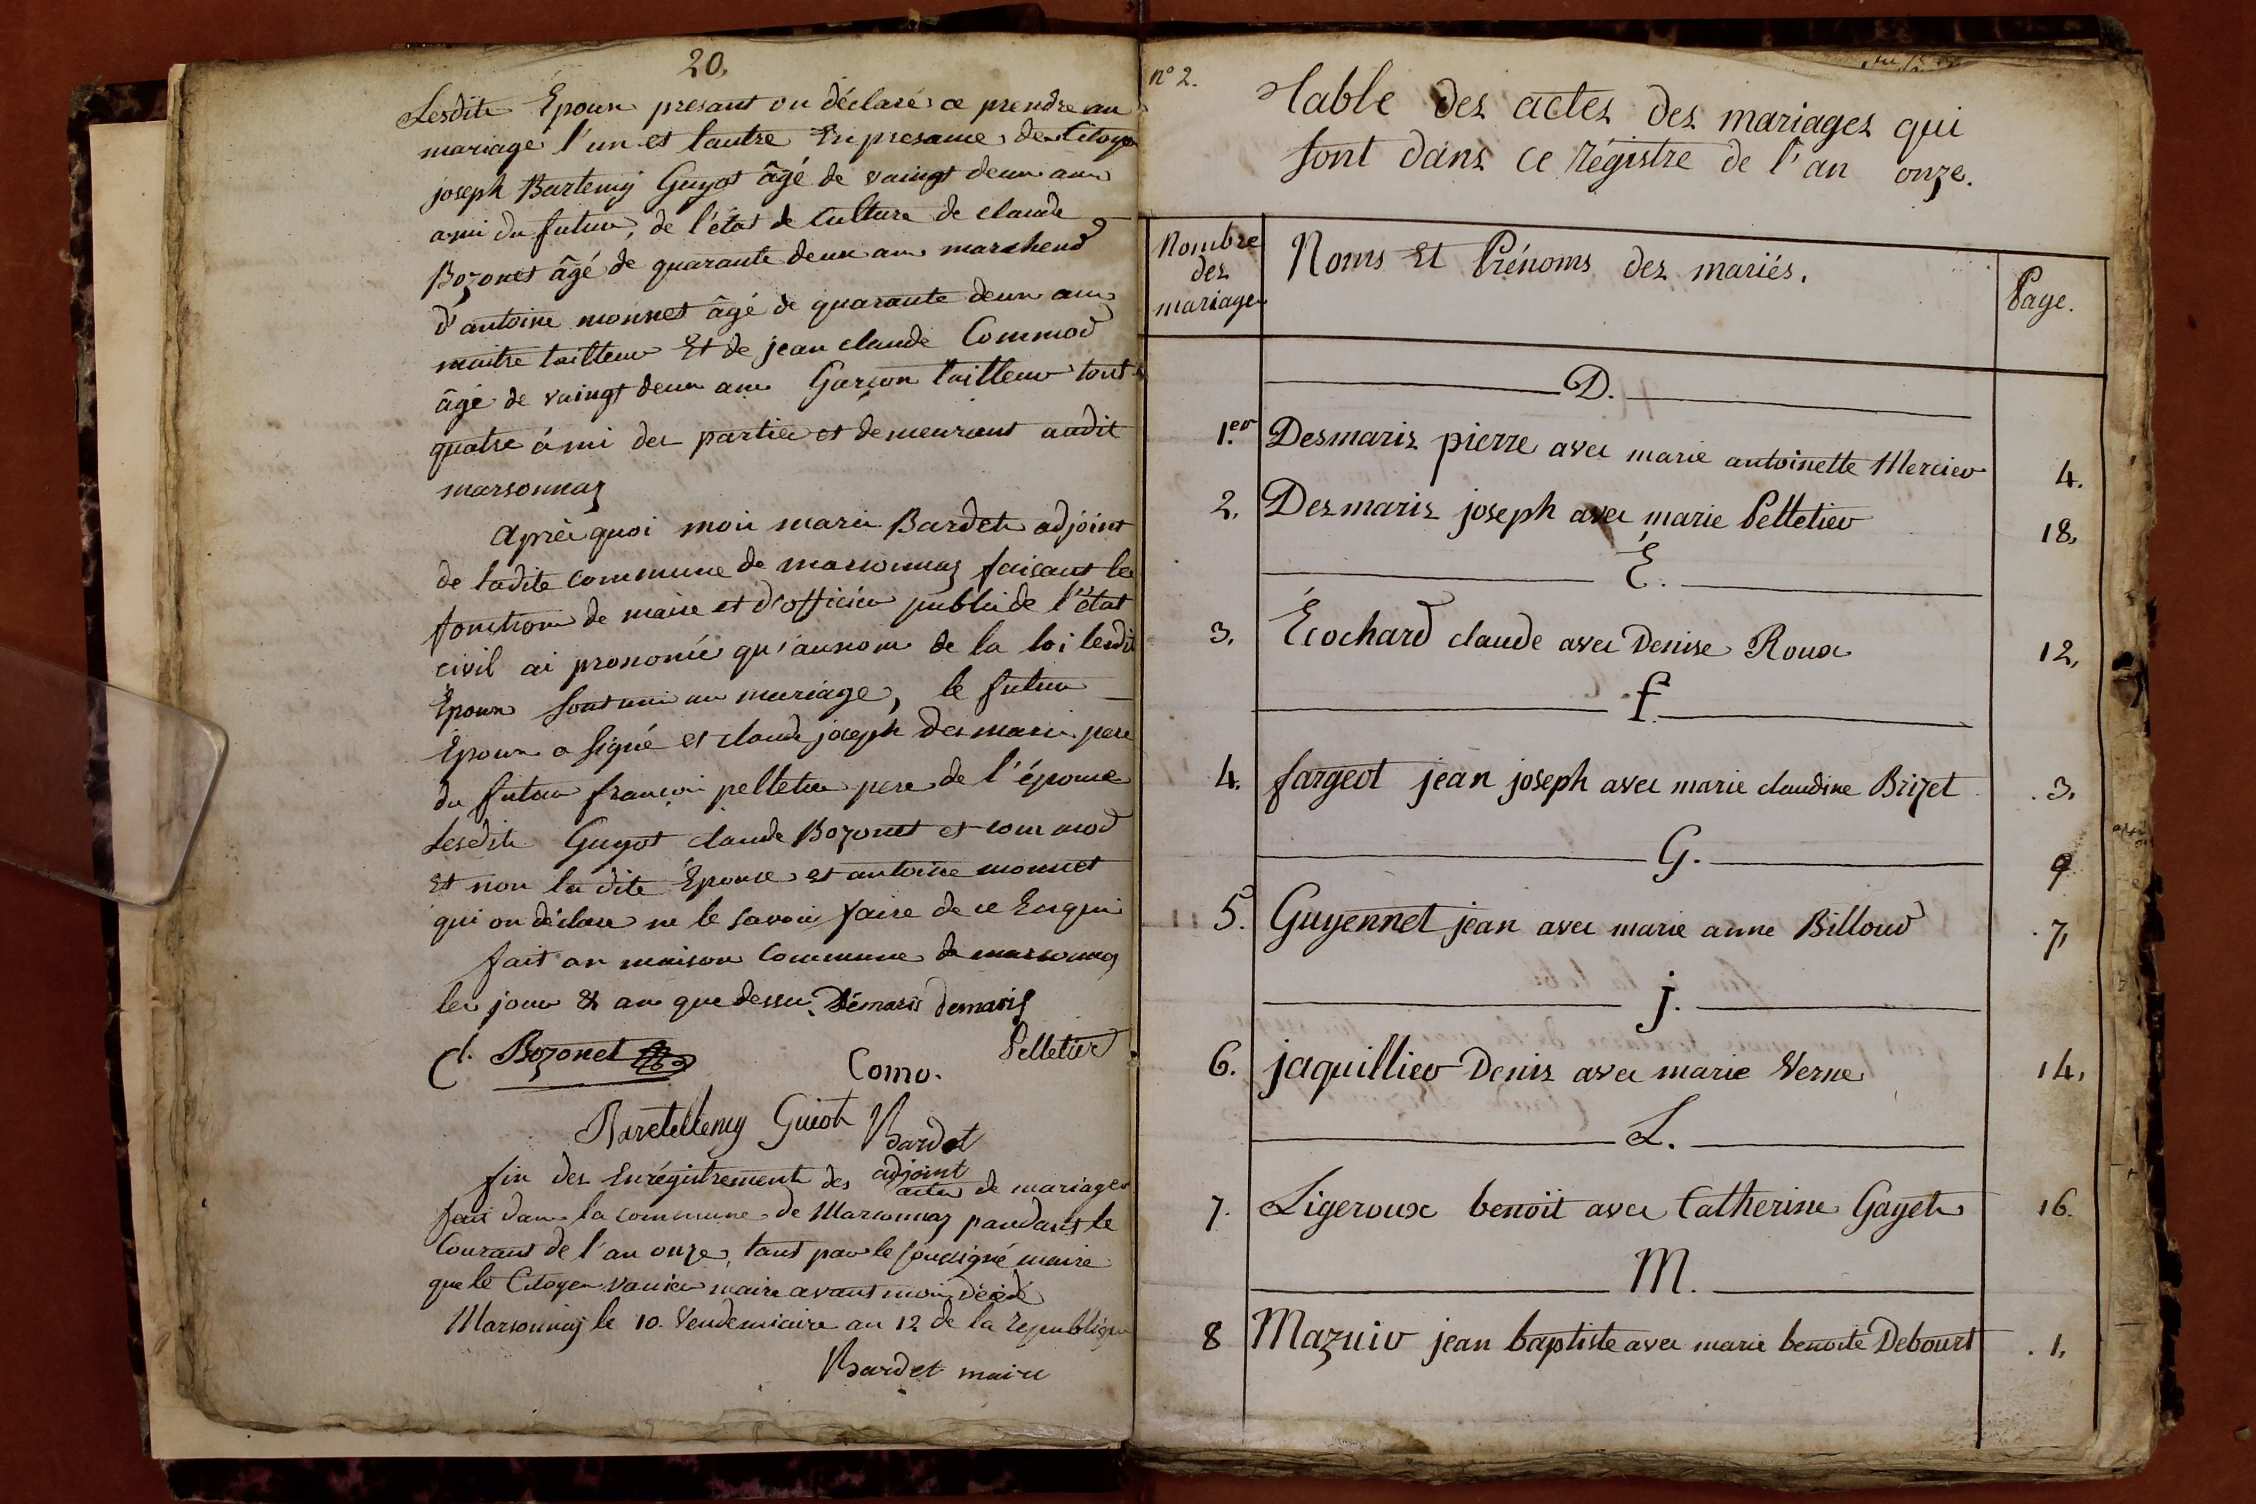 20.
Lesdits Epoux presant on déclaré ce prendre an
mariage l'un et lautre En presance des Citoyen
joseph Bartemy Guyot âgé de vaingt deux ans
ami du futur, de l'état de Culture de claude
Bozonet âgé de quarante deux ans marchend
d'antoine monnet âgé de quarante deux ans
maitre tailleur Et de jean claude Commod
âgé de vaingt deux ans Garçon tailleur tout
quatre ámi des parties et demeurant audit
marsonnaz
Après quoi moi marie Bardet adjoint
de ladite commune de marsonnaz faisant les
fonctions de maire et d'officier public de l'état
civil ai prononcé qu'au nom de la loi lesdit
Epoux sont uni an mariage, le futur
Epoux a signé et claude joseph Desmaris pere
du futur françois pelletier pere de l'épouse
Lesdits Guyot claude Bozonet et commod
et non la dite Epouse et antoine monnet
qui on déclare ne le savoir faire de ce Enquis
fait an maison Commune de marsonnaz
les jour & an que dessus Démaris demaris
Cl. Bozonet Como. Pelletier
Bartellemy Guiot Bardet
adjoint
fin des Enrégistrements des actes de mariages
fait dans la commune de Marsonnaz pandant le
Courant de l'an onze, tant par le soussigné maire
que le Citoyen vanier maire avant moi décédé
Marsonnaz le 10. Vendemiaire an 12 de la republique
Bardet maire
nº 2.
Table des actes des mariages qui
sont dans ce régistre de l'an onze.
Nombre des mariages
Noms Et Prénoms des mariés.
Page.
D.
1.er Desmaris pierre avec marie antoinette Mercier 4.
2. Desmaris joseph avec marie Pelletier 18,
E.
3, Écochard claude avec Denise Roux 12,
f.
4. fargeot jean joseph avec marie claudine Brizet 3,
G. 9
5. Guyennet jean avec marie anne Billoud 7,
j.
6. jaquillier Denis avec marie Verne 14,
L.
7. Ligeroux benoit avec Catherine Gayet 16.
M.
8 Mazuir jean baptiste avec marie benoite Debourt 1,